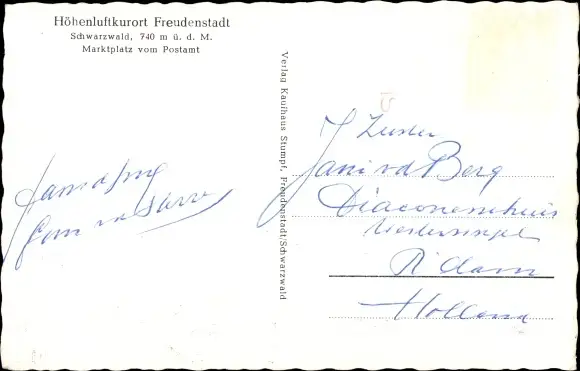 Höhenluftkurort Freudenstadt
Schwarzwald, 740 m ü. d. M.
Marktplatz vom Postamt
Verlag Kaufhaus Stumpf, Freudenstadt/Schwarzwald
Zuster
Jani vd Berg
Diaconessehuis
Westersingel
R'dam
Holland